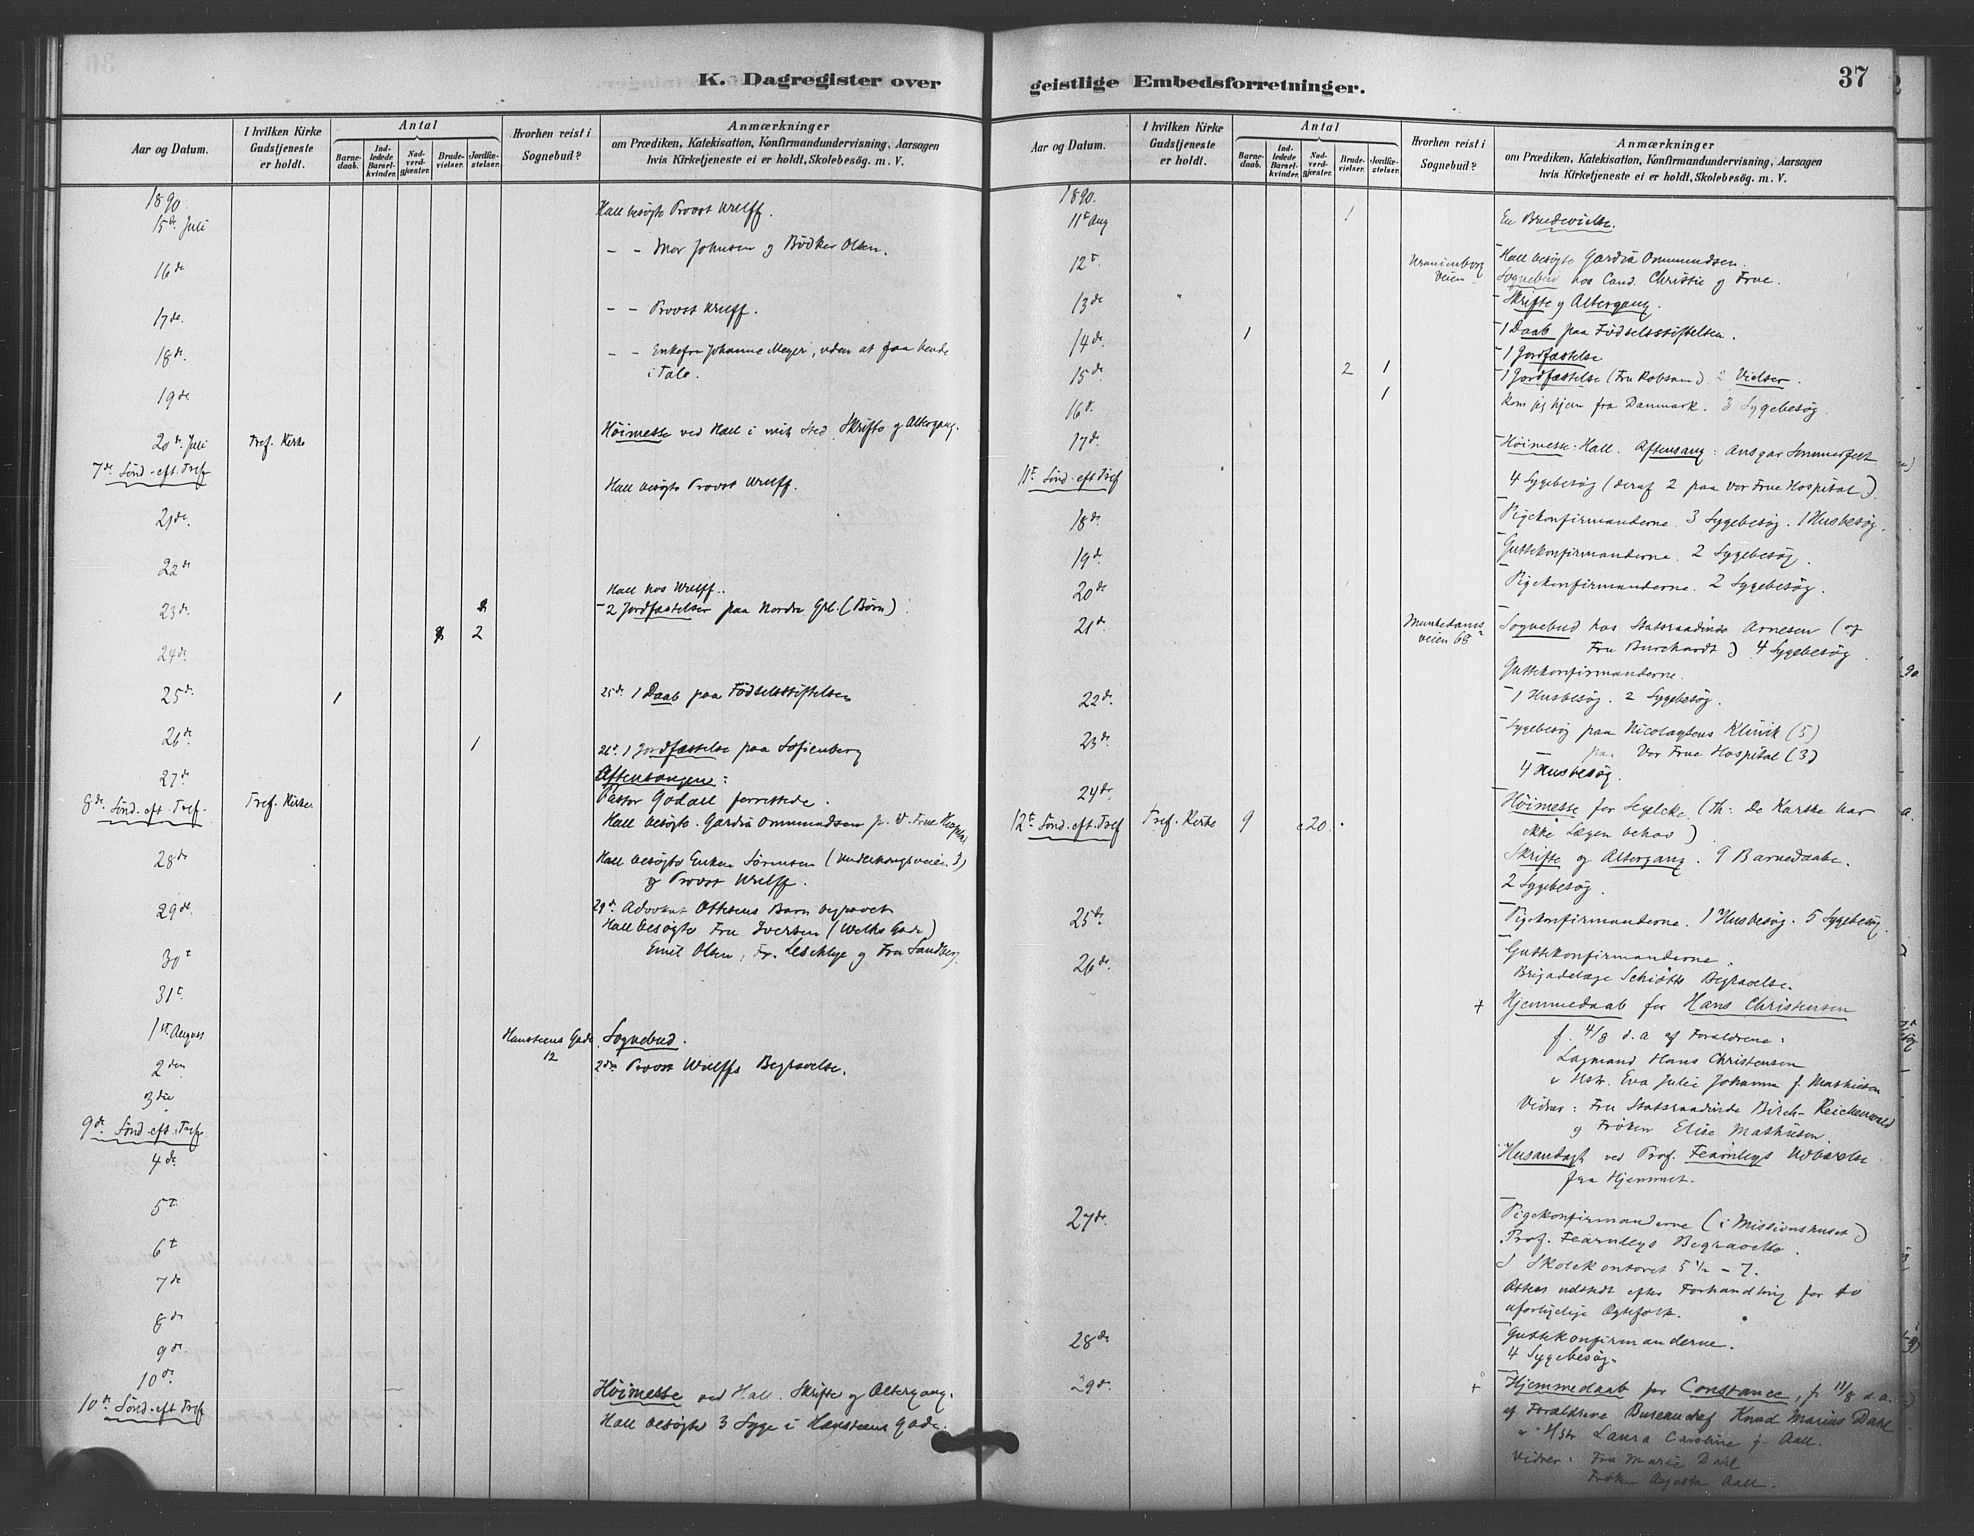 K. Dagregister over
Aar og Datum.
I hvilken Kirke Gudstjeneste er holdt.
Antal
Barnedaab.
Indledede Barselkvinder.
Nadverdgjæster.
Brudevielser.
Jordfæstelser.
Hvorhen reist i Sognebud?
Anmærkninger
om Prædiken, Katekisation, Konfirmandundervisning, Aarsagen
hvis Kirketjeneste ei er holdt, Skolebesøg. m. V.
1890.
15de Juli Hall besøgte Provst Wulff.
16de – – Mor Johnsen og Bødker Olsen.
17de. – – Provst Wulff.
18de. – – Enkefru Johanne Meyer, uden at faa hende
i Tale.
19de
20de Juli Tref. Kirke Høimesse ved Hall i mit Sted. Skrifte og Altergang.
7de Sønd. eft. Tref
21de. Hall besøgte Provst Wulff.
22de
23de Hall hos Wulff..
– 2 Jordfæstelser paa Nordre Gvl. (Børn)
2
24de
25de 1 25de 1 Daab paa Fødselsstiftelsen
26de 1 26de 1 Jordfæstelse paa Sofienberg
27de Aftensangen:
8de Sønd. eft. Tref. Tref. Kirke Pastor Godall forrettede.
Hall besøgte Gardia Ommundsen p. V. Frue Hospital
28de Hall besøgte Enken Sørensen
og Provst Wulff.
29de. 29de Advokat Ottesens Barn begravet
Hall besøgte Fru Iversen
30t Emil Olsen, Fr. og Fru Sandberg.
31t
1ste August Hansteens Gade 12 Sognebud.
2den 2den Provst Wulffs Begravelse.
3die
9de Sønd. eft. Tref.
4de
5t
6t
7de
8de
9de
10de
10de Sønd. eft. Tref Høimesse ved Hall. Skrifte og Altergang.
Hall besøgte 3 Syge i Hansteens Gade.
geistlige Embedsforretninger.
37
Aar og Datum.
I hvilken Kirke Gudstjeneste er holdt.
Antal
Barnedaab.
Indledede Barselkvinder.
Nadverdgjæster.
Brudevielser.
Jordfæstelser.
Hvorhen reist i Sognebud?
Anmærkninger
om Prædiken, Katekisation, Konfirmandundervisning, Aarsagen
hvis Kirketjeneste ei er holdt, Skolebesøg. m. V.
1890.
11t Aug 1 En Brudevielse.
12t. Uranienborg Veien Hall besøgte Gardia Ommundsen.
Sognebud hos Cand. Christie og Frue.
13de – Skrifte og Altergang.
14de. 1 – 1 Daab paa Fødselsstiftelsen.
– 1 Jordfæstelse
15de 2 1 – 1 Jordfæstelse (Fru Robsam). 2 Vielser.
16de 1 Kom jeg hjem fra Danmark. 3 Sygebesøg
17de. – Høimesse – Hall. Aftensang: Ansgar Sommerfelt
11t Sønd. eft Tref 4 Sygebesøg (deraf 2 paa Vor Frue Hospital).
18de. – Pigekonfirmanderne. 3 Sygebesøg. 1 Husbesøg.
19de. – Guttekonfirmanderne. 2 Sygebesøg.
20de – Pigekonfirmanderne. 2 Sygebesøg.
21de Munkedamsveien 68 – Sognebud hos Statsraadinde Arnesen (og
Fru Burchardt) 4 Sygebesøg
Guttekonfirmanderne.
22de. – 1 Husbesøg. 2 Sygebesøg.
23de. – Sygebesøg paa Nicolaysens Klinik (5)
paa Vor Frue Hospital (3)
4 Husbesøg.
24de.
12t Sønd. eft. Tref Tref. Kirke 9 c20. – Høimesse for Segelcke (Th: De Karske har
ikke Lægen behov)
Skrifte og Altergang. 9 Barnedaabe.
2 Sygebesøg.
25de – Pigekonfirmanderne. 1 Husbesøg. 5 Sygebesøg.
26de – Guttekonfirmanderne.
Brigadelæge Schiøtts Begravelse.
+ Hjemmedaab for Hans Christensen
f. 4/8 d. a af Forældrene:
Lagmand Hans Christensen
& Hstr. Eva Julie Johanna f. Mathiesen
Vidner: Fru Statsraadinde Birch-Reichenwald
og Frøken Elise Mathiesen.
Husandagt ved Prof. Fearnleys Udbærelse
fra Hjemmet.
27de. – Pigekonfirmanderne (i Missionshuset)
Prof. Fearnleys Begravelse.
I Skolekontoret 5 1/2 – 7.
Attest udstedt efter Forhandling for to
uforligelige Ægtefolk.
28de – Guttekonfirmanderne.
4 Sygebesøg.
29de. + – Hjemmedaab for Constance, f. 11/8 d. a.
af Forældrene Bureauchef Knud Marius Dahl
& Hstr. Laura Caroline f. Aall.
Vidner: Fru Marie Dahl
Frøken Agusta Aall.